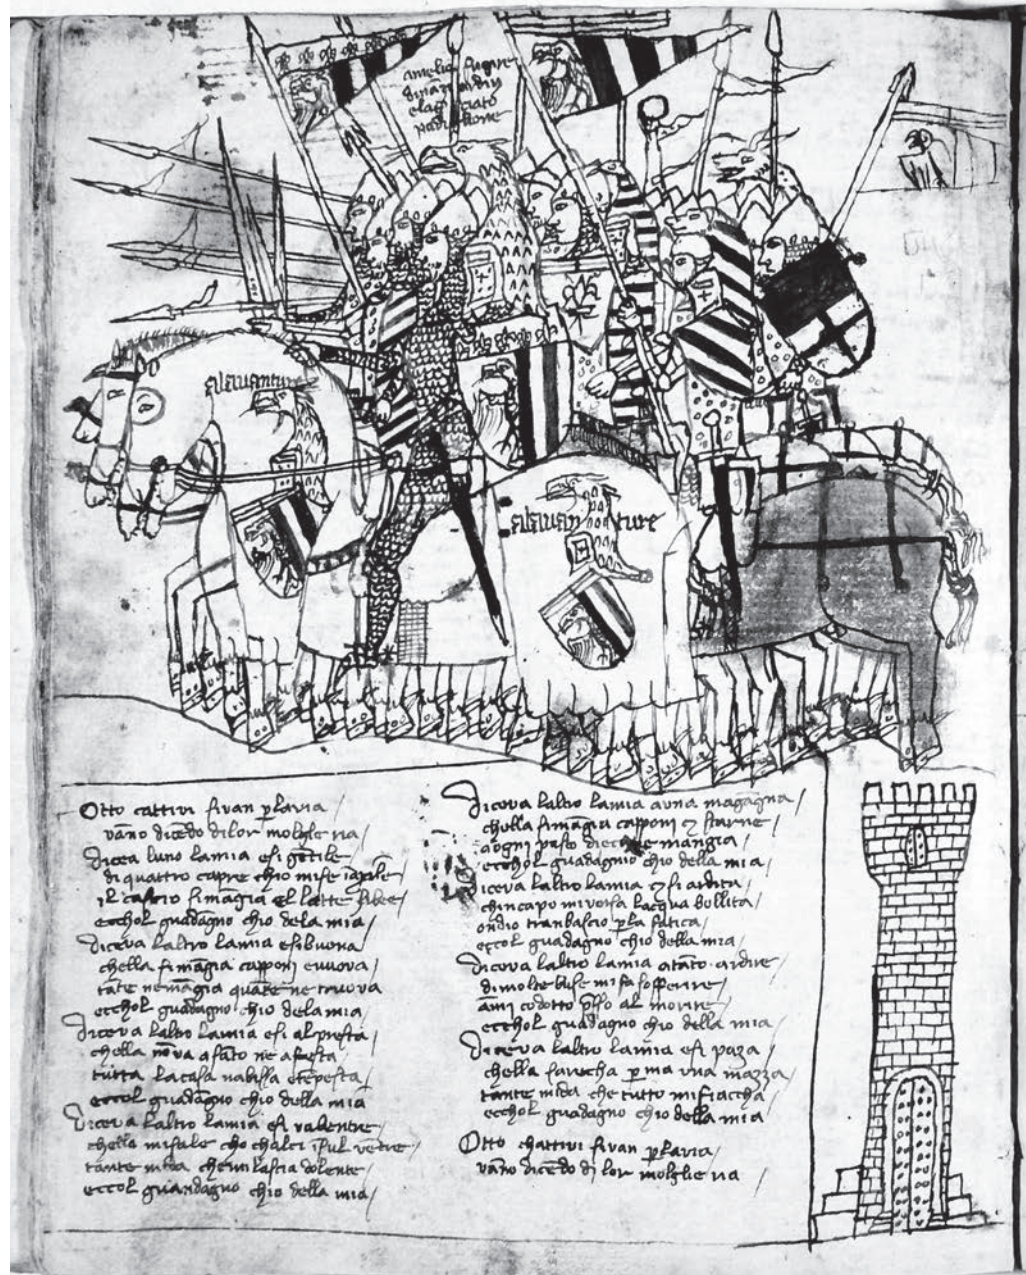 amelio
alauanture
alauanture
Otto cattivi sivan plavia
vāno dicēdo di lor molgle ria
Dicea luno lamia esi gētile
di quattro capre chio mise
il cascio simāgia el latte sibee
ecchol guadagno chio dela mia
diceva laltro lamia esi buona
chella simāgia capponi euuova
tāte nemāgia quāte ne truova
ecchol guadagno chio dela mia
diceva laltro lamia esi alpresta
chella nō va asāto ne afesta
tutta lacasa nabissa etēpesta
eccol guadāgno chio della mia
diceva laltro lamia esi valentre
chella misale cho chalci īsul vētre
tante mida chemi lascia dolente
eccol guandagno chio della mia
diceva laltro lamia auna magagna
chella simāgia capponi starne
a ogni pasto dieci ne mangia
ecchol guadagnio chio della mia
diceva laltro lamia si ardita
chincapo mi versa lacqua bollita
ondio tranbascio pla fatica
eccol guadagno chio della mia
diceva laltro lamia atāto ardire
dimolte buse mi fa sofferire
āmi codotto al morire
ecchol guadagno chio della mia
diceva laltro lamia esi paza
chella sarecha p ma una mazza
tante mida che tutto mi fiaccha
ecchol guadagno chio della mia
Otto chattivi sivan plavia
vāno dicēdo di lor molglie ria